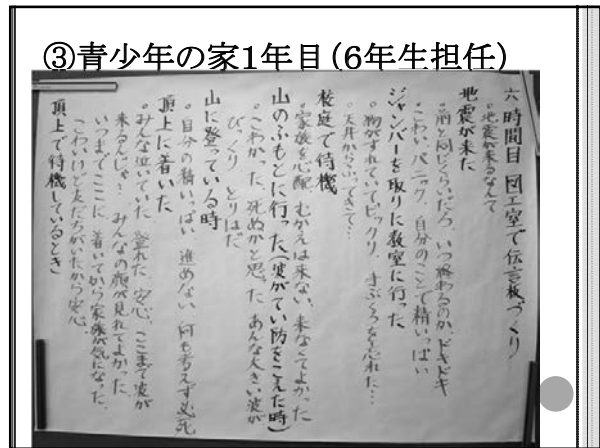 ③青少年の家1年目(6年生担任)
六時間目 図工室で伝言板づくり
。地震が来るなんて
地震が来た
。前と同じくらいだろ、いつ終わるのか、ドキドキ
。こわい、パニック、自分のことで精いっぱい
ジャンバーを取りに教室に行った
。物がずれていてビックリ、手ぶくろを忘れた…
。天井からふってきて…
校庭で待機
。家族を心配 むかえは来ない、来なくてよかった
山のふもとに行った(波がてい防をこえた時)
。こわかった、死ぬかと思った あんな大きい波が
びっくり とりはだ
山に登っている時
。自分の精いっぱい 進めない 何も考えず必死
頂上に着いた
。みんな泣いていた 登れた 安心、ここまで波が
来るんじゃ… みんなの顔が見れてよかった
いつまでここに 着いてから家族が気になった、
こわいけど友だちがいたから安心、
頂上で待機しているとき